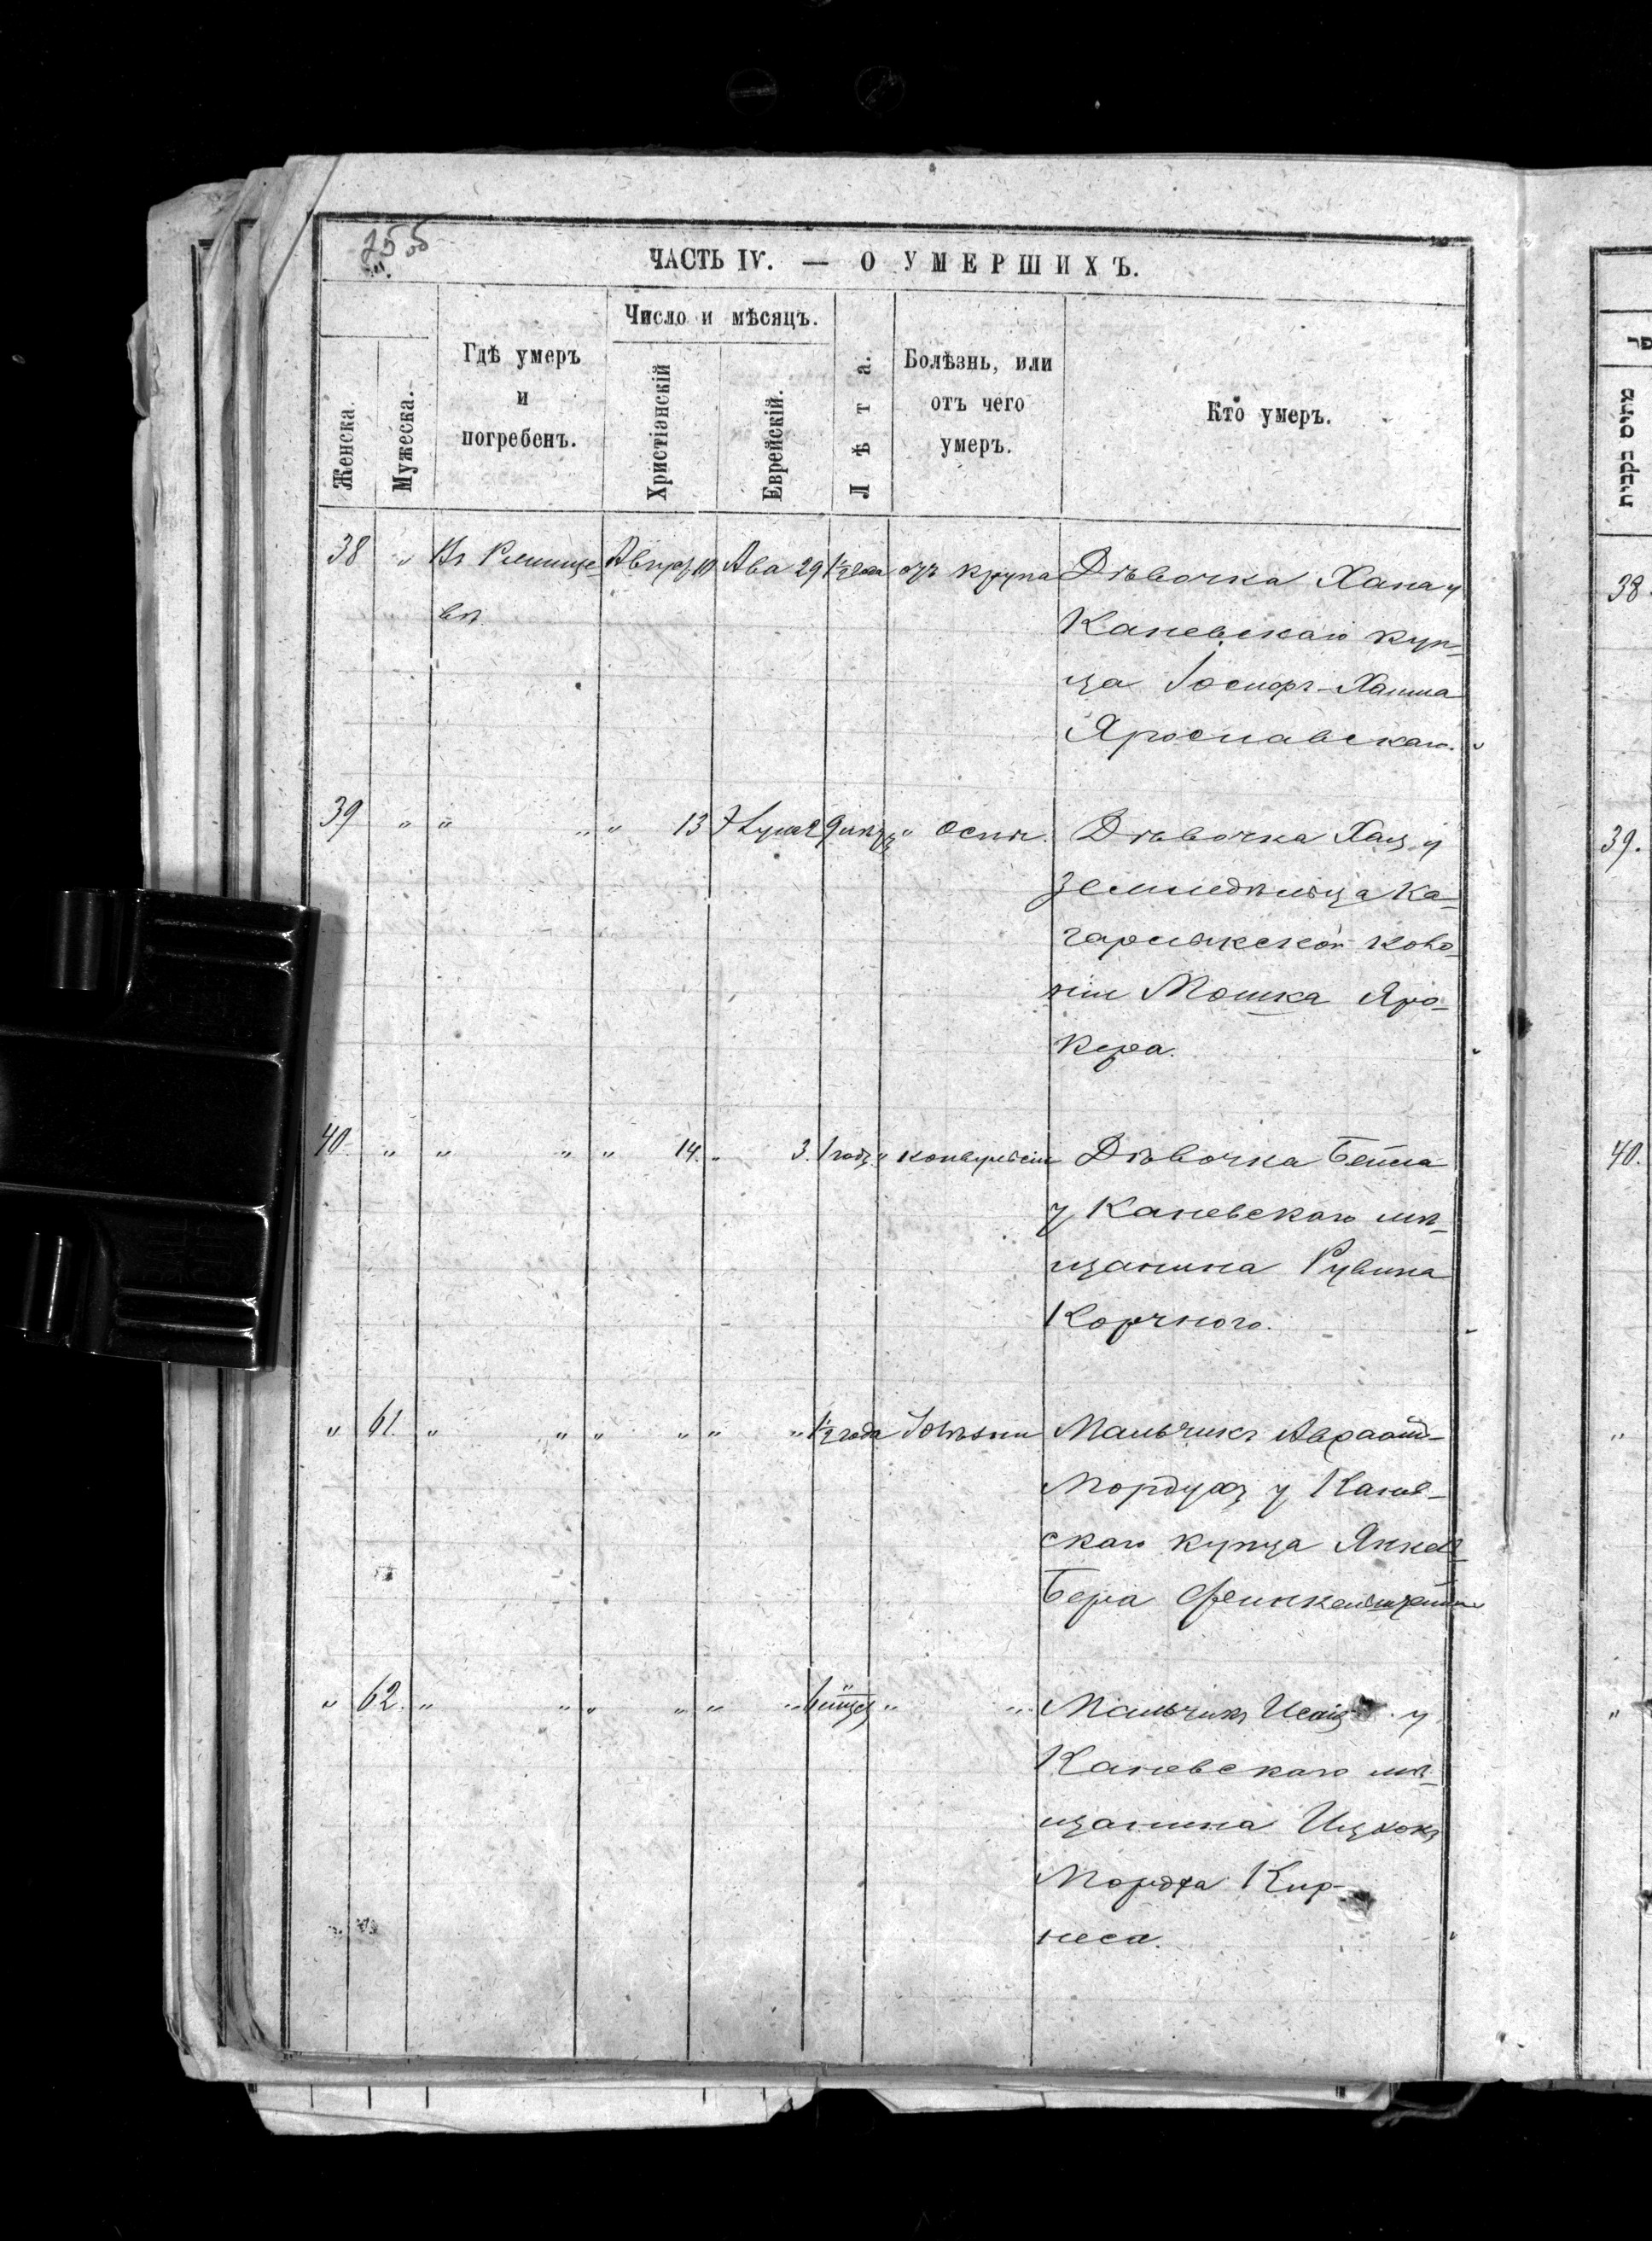 255 об
ЧАСТЬ IV. — О УМЕРШИХЪ.
Женска.
Мужеска.
Гдѣ умеръ
и
погребенъ.
Число и мѣсяцъ.
Христіанскій
Еврейскій.
Лѣта.
Болѣзнь, или
отъ чего
умеръ.
Кто умеръ.
38 „ Въ Ржище- Августъ 10 Ава 29 1½ года отъ крупа Дѣвочка Хана у
вѣ Каневскаго куп-
ца Іосифъ-Хаима
Ярославскаго.
39 „ „ „ „ 13 2 9 „ оспы. Дѣвочка у
земледѣльца Ка-
гарлыкской коло-
ніи Мошка Яро-
кера.
40 „ „ „ „ 14. „ 3. 1 годъ „ конвульсіи Дѣвочка Бейла
у Каневскаго мѣ-
щанина Рувина
Корчного.
„ 61. „ „ „ „ „ „ 1½ года Мальчикъ Авраамъ-
Мордухъ у Канев-
скаго купца Янкел-
Бера Финкельштейна
„ 62. „ „ „ „ „ „ „ „ Мальчикъ у
Каневскаго мѣ-
щанина Ицкока
Мордха Кир-
неса.
מתים
נקבות
38.
39.
40.
„
„